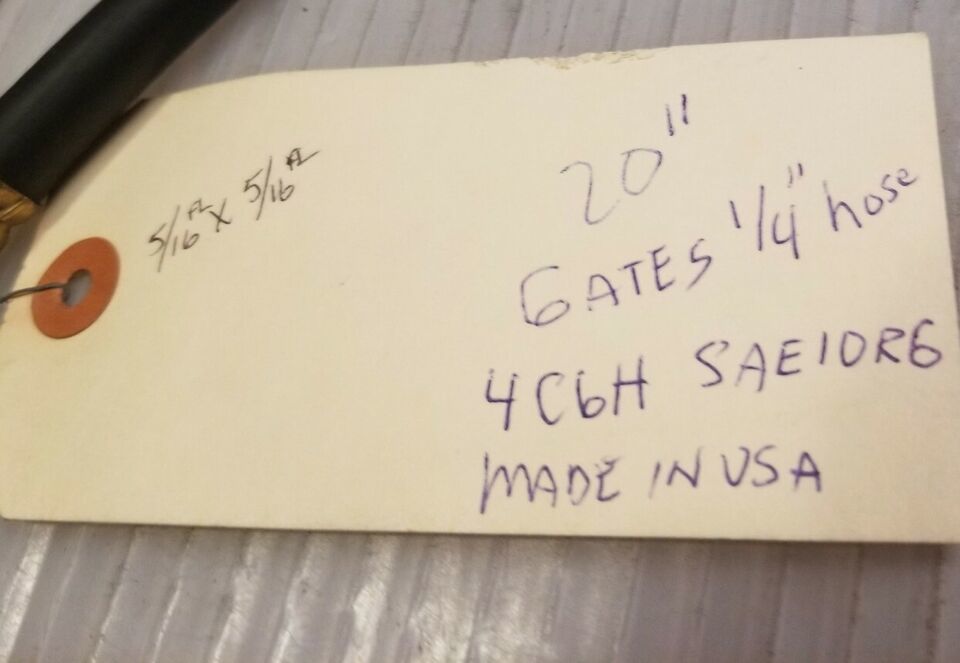 5/16 FL X 5/16 FL
20"
GATES 1/4" hose
4C6H SAE10R6
MADE IN USA